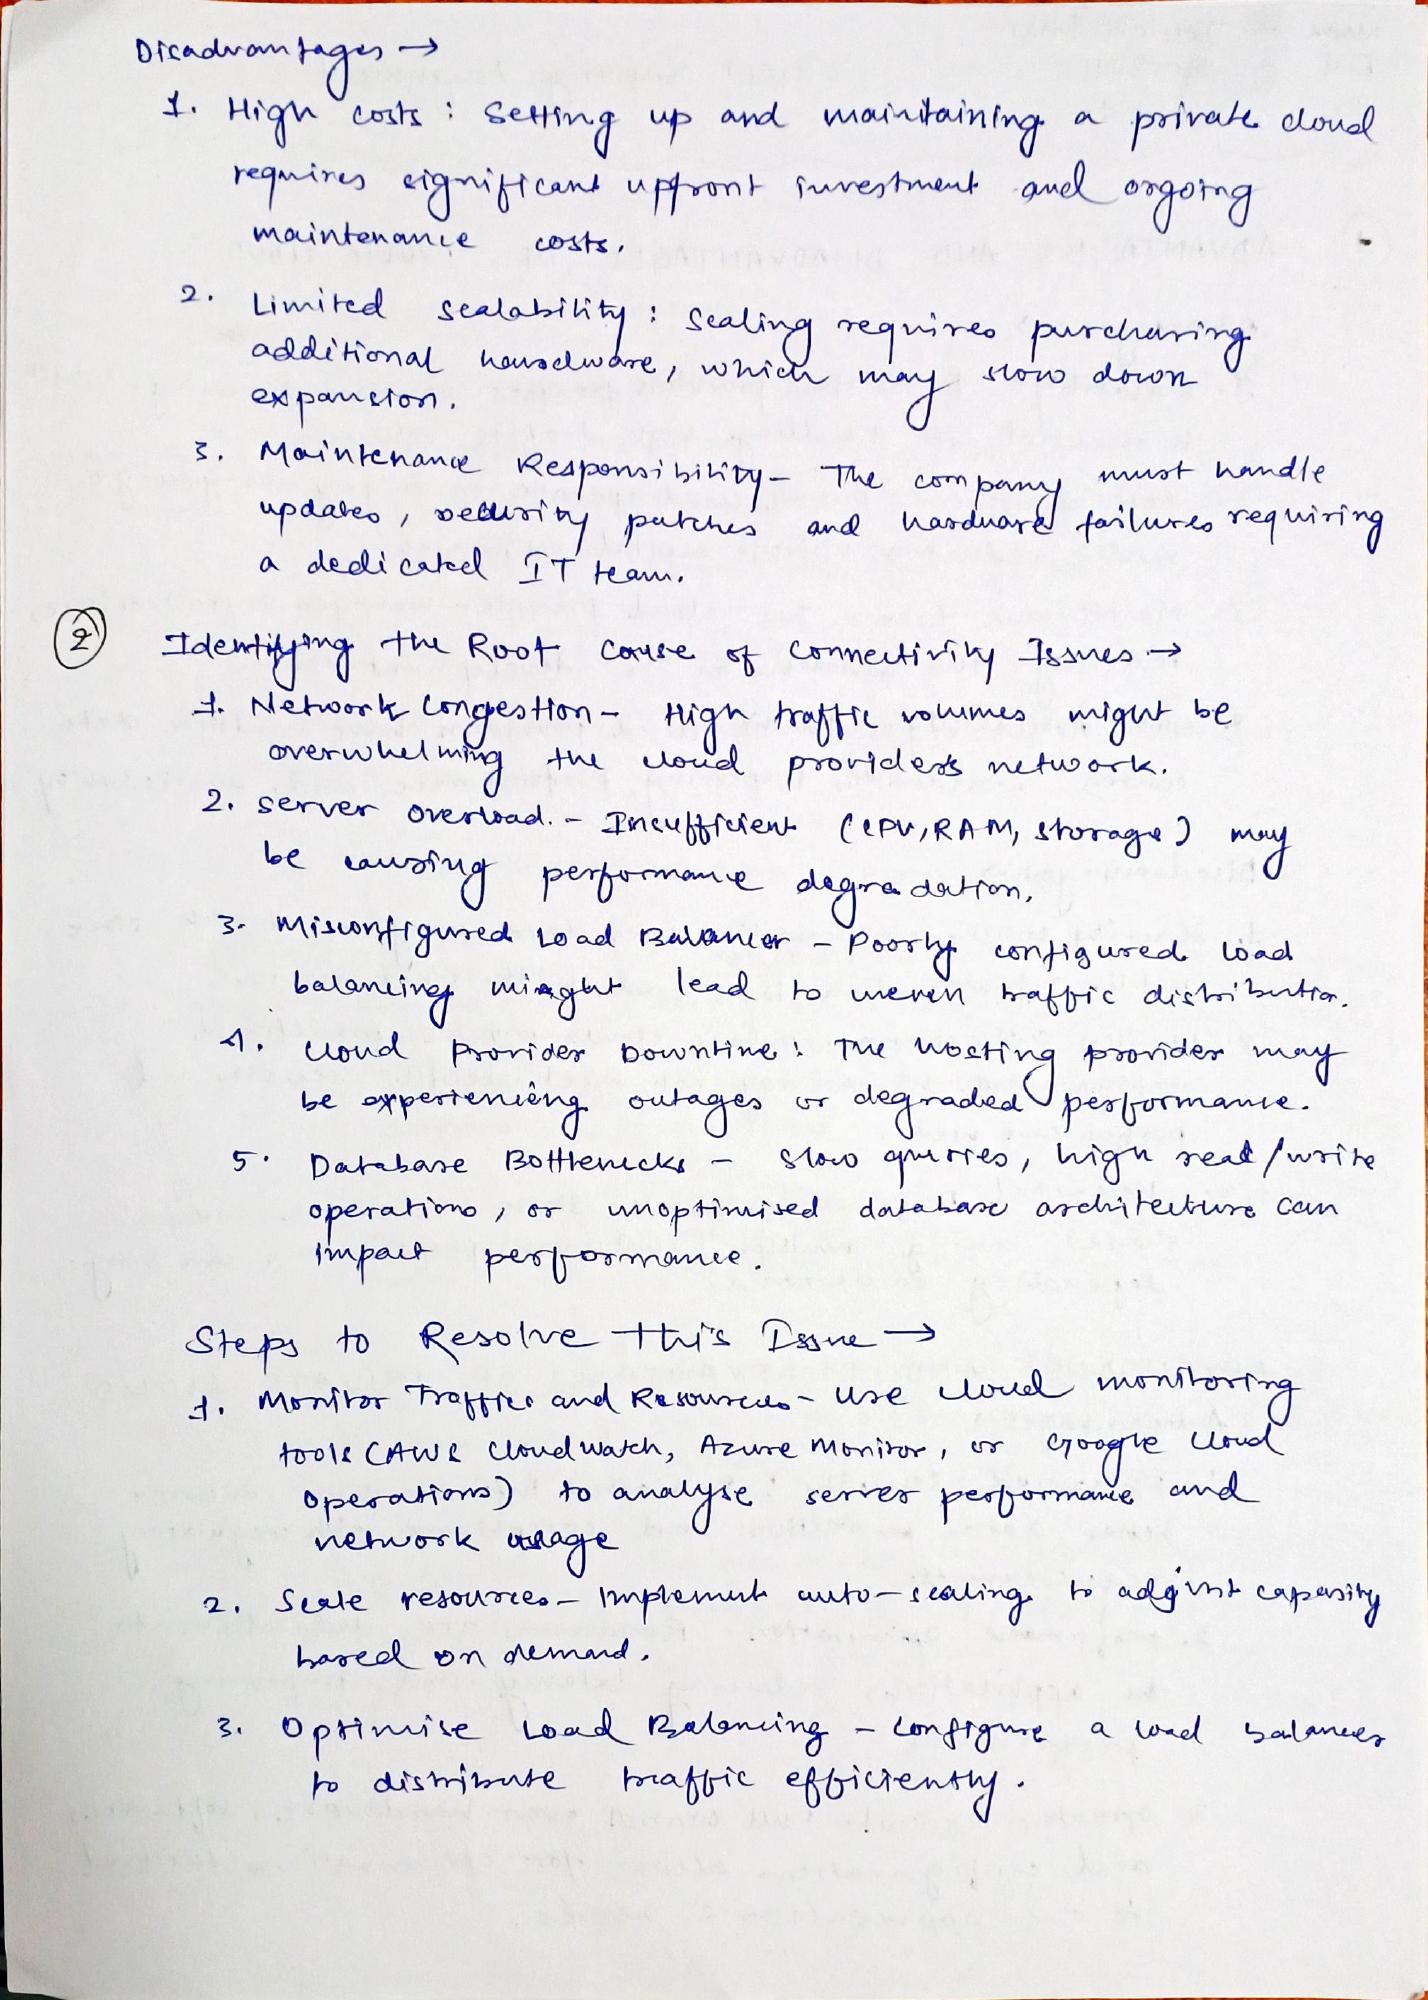 Disadvantages →
1. High costs : Setting up and maintaining a private cloud
requires significant upfront investment and ongoing
maintenance costs.
2. Limited scalability : Scaling requires purchasing
additional hardware, which may slow down
expansion.
3. Maintenance Responsibility – The company must handle
updates, security patches and hardware failures requiring
a dedicated IT team.
2 Identifying the Root Cause of Connectivity Issues →
1. Network Congestion – High traffic volumes might be
overwhelming the cloud providers network.
2. Server overload. – Insufficient (CPU, RAM, storage) may
be causing performance degradation.
3. Misconfigured Load Balancer – Poorly configured load
balancing might lead to uneven traffic distribution.
4. Cloud Provider Downtime : The hosting provider may
be experiencing outages or degraded performance.
5. Database Bottlenecks – Slow queries, high read/write
operations, or unoptimised database architecture can
impact performance.
Steps to Resolve this Issue →
1. Monitor Traffic and Resources – Use cloud monitoring
tools (AWS CloudWatch, Azure Monitor, or Google Cloud
Operations) to analyse server performance and
network usage
2. Scale resources – Implement auto-scaling to adjust capasity
based on demand.
3. Optimise Load Balancing – Configure a load balancer
to distribute traffic efficiently.